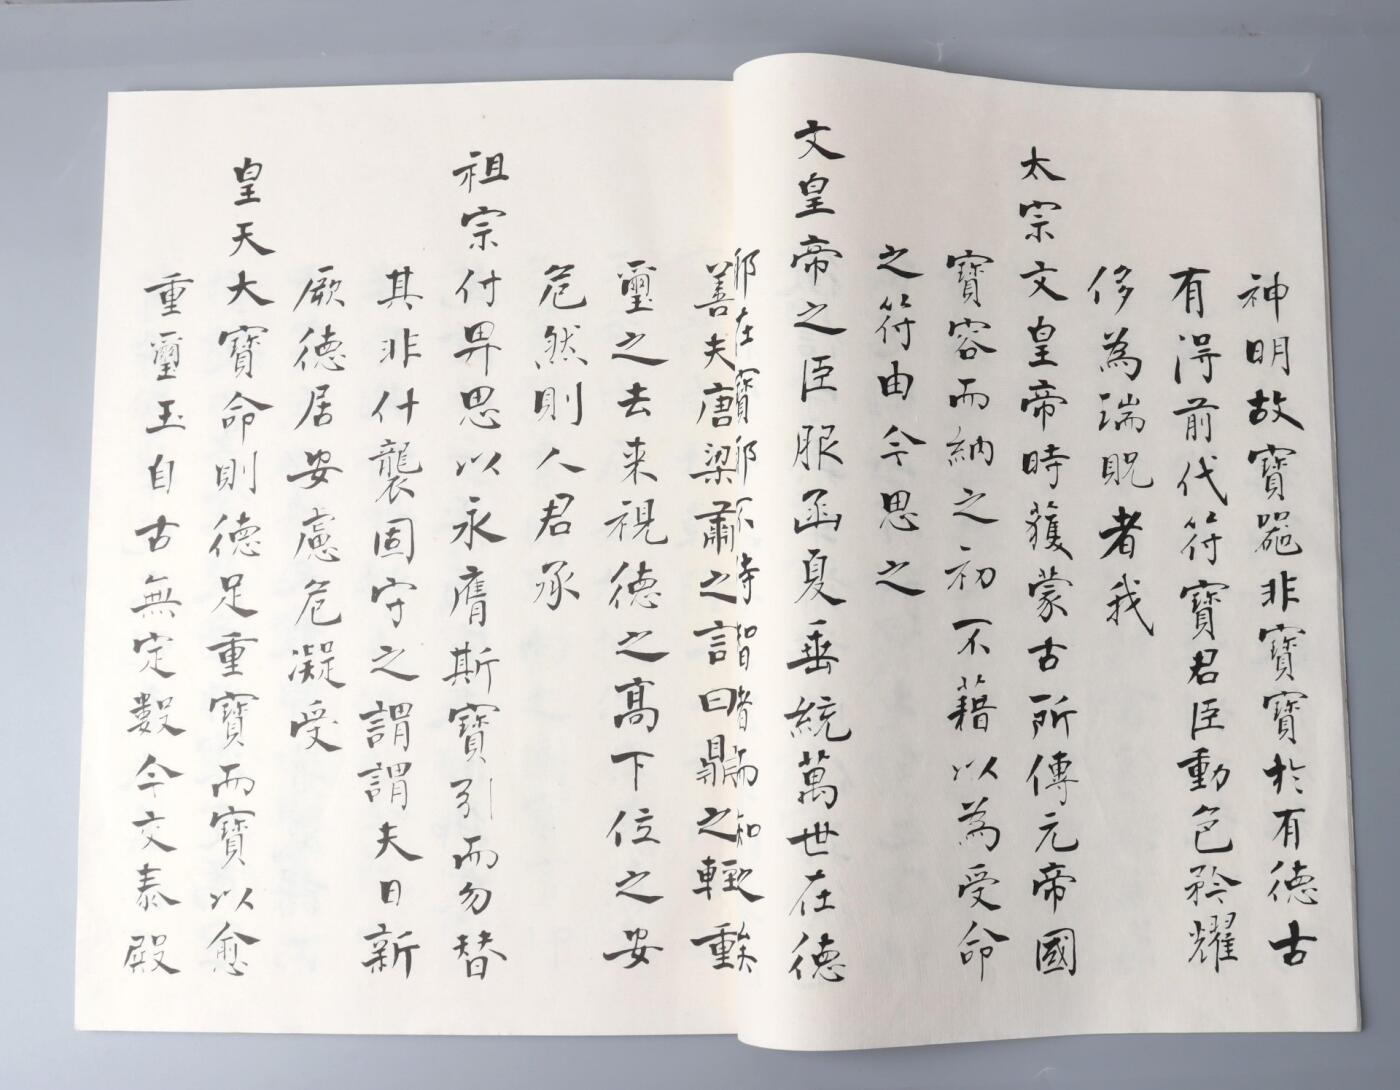 神明故寶器非寶寶於有德古
有得前代符寶君臣動色矜耀
侈為瑞貺者我
太宗文皇帝時獲蒙古所傳元帝國
寶容而納之初不藉以為受命
之符由今思之
文皇帝之臣服函夏垂統萬世在德
耶在寶耶不待智者而知矣
善夫唐梁肅之言曰鼎之輕重
璽之去来視德之高下位之安
危然則人君承
祖宗付畀思以永膺斯寶引而勿替
其非什襲固守之謂謂夫日新
厥德居安慮危凝受
皇天大寶命則德足重寶而寶以愈
重璽玉自古無定數今交泰殿